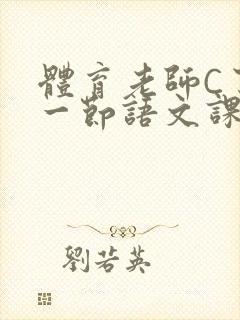 體育老師C
一節語文課
劉若英